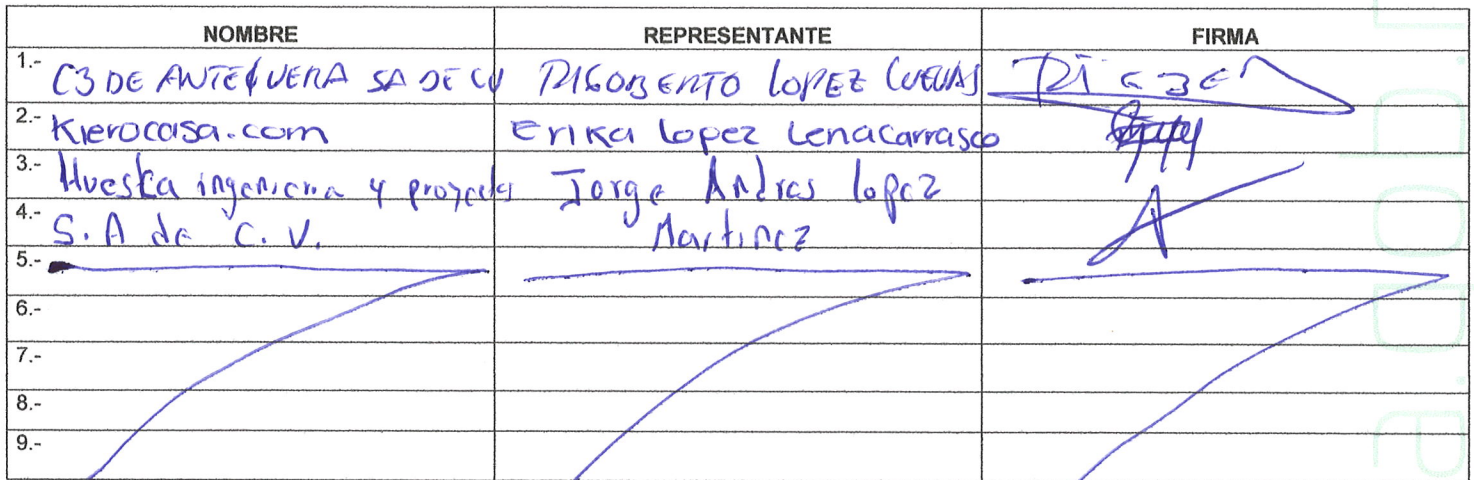 NOMBRE REPRESENTANTE FIRMA
1.- C3 DE ANTEQUERA SA DE CV RIGOBERTO LOPEZ CUEVAS
2.- Kierocasa.com Erika Lopez Lenacarrasco
3.- Hueska ingenieria y proyectos Jorge Andres Lopez
4.- S.A de C.V. Martinez
5.-
6.-
7.-
8.-
9.-